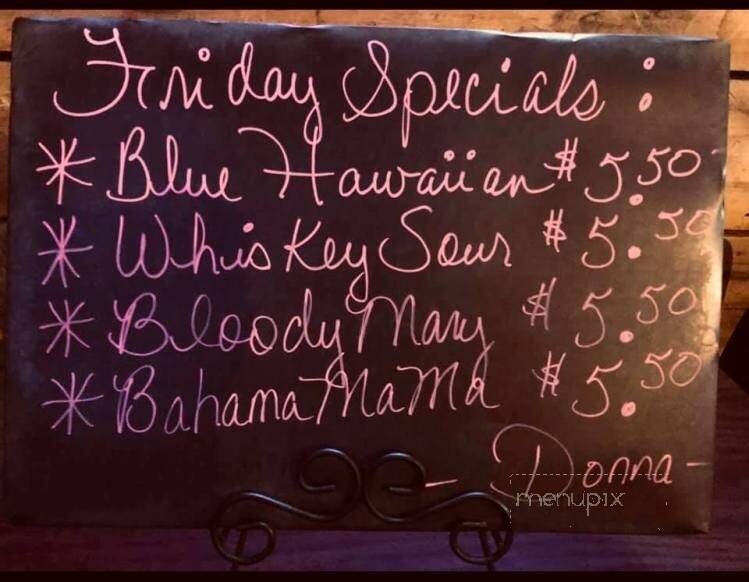 Friday Specials :
* Blue Hawaiian $5.50
* Whiskey Sour $5.50
* Bloody Mary $5.50
* Bahama Mama $5.50
- Donna -
menupix